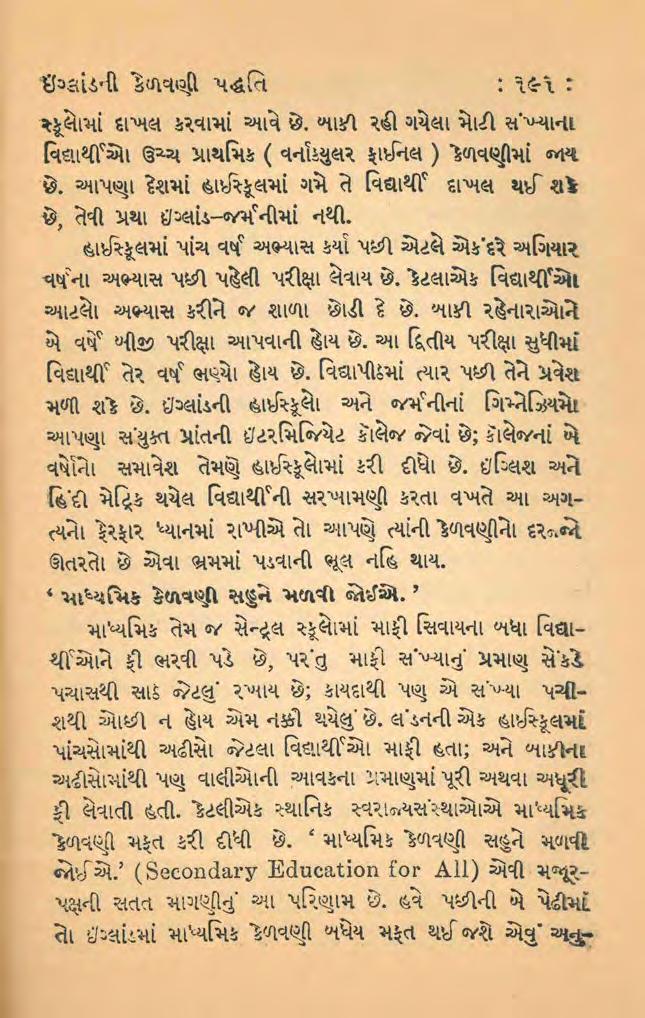 ઇંગ્લાંડની કેળવણી પદ્ધતિ : ૧૯૧ :
સ્કૂલોમાં દાખલ કરવામાં આવે છે. બાકી રહી ગયેલા મોટી સંખ્યાના
વિદ્યાર્થીઓ ઉચ્ચ પ્રાથમિક ( વર્નાક્યુલર ફાઈનલ ) કેળવણીમાં જાય
છે. આપણા દેશમાં હાઈસ્કૂલમાં ગમે તે વિદ્યાર્થી દાખલ થઈ શકે
છે, તેવી પ્રથા ઇંગ્લાંડ–જર્મનીમાં નથી.
હાઈસ્કૂલમાં પાંચ વર્ષ અભ્યાસ કર્યા પછી એટલે એકંદરે અગિયાર
વર્ષના અભ્યાસ પછી પહેલી પરીક્ષા લેવાય છે. કેટલાએક વિદ્યાર્થીઓ
આટલો અભ્યાસ કરીને જ શાળા છોડી દે છે. બાકી રહેનારાઓને
બે વર્ષે બીજી પરીક્ષા આપવાની હોય છે. આ દ્વિતીય પરીક્ષા સુધીમાં
વિદ્યાર્થી તેર વર્ષ ભણ્યો હોય છે. વિદ્યાપીઠમાં ત્યાર પછી તેને પ્રવેશ
મળી શકે છે. ઇંગ્લાંડની હાઈસ્કૂલો અને જર્મનીનાં ગિમ્નેઝિયમો
આપણા સંયુક્ત પ્રાંતની ઇંટરમિજિયેટ કૉલેજ જેવાં છે; કૉલેજનાં બે
વર્ષોનો સમાવેશ તેમણે હાઈસ્કૂલોમાં કરી દીધો છે. ઇંગ્લિશ અને
હિંદી મેટ્રિક થયેલ વિદ્યાર્થીની સરખામણી કરતા વખતે આ અગ-
ત્યનો ફેરફાર ધ્યાનમાં રાખીએ તો આપણે ત્યાંની કેળવણીનો દરજ્જો
ઊતરતો છે એવા ભ્રમમાં પડવાની ભૂલ નહિ થાય.
‘ માધ્યમિક કેળવણી સહુને મળવી જોઈએ. ’
માધ્યમિક તેમ જ સેન્ટ્રલ સ્કૂલોમાં માફી સિવાયના બધા વિદ્યા-
ર્થીઓને ફી ભરવી પડે છે, પરંતુ માફી સંખ્યાનું પ્રમાણ સેંકડે
પચાસથી સાઠ જેટલું રખાય છે; કાયદાથી પણ એ સંખ્યા પચી-
શથી ઓછી ન હોય એમ નક્કી થયેલું છે. લંડનની એક હાઈસ્કૂલમાં
પાંચસોમાંથી અઢીસો જેટલા વિદ્યાર્થીઓ માફી હતા; અને બાકીના
અઢીસોમાંથી પણ વાલીઓની આવકના પ્રમાણમાં પૂરી અથવા અધૂરી
ફી લેવાતી હતી. કેટલીએક સ્થાનિક સ્વરાજ્યસંસ્થાઓએ માધ્યમિક
કેળવણી મફત કરી દીધી છે. ‘ માધ્યમિક કેળવણી સહુને મળવી
જોઈએ.’ (Secondary Education for All) એવી મજૂર-
પક્ષની સતત માગણીનું આ પરિણામ છે. હવે પછીની બે પેઢીમાં
તો ઇંગ્લાંડમાં માધ્યમિક કેળવણી બધેય મફત થઈ જશે એવું અનુ-